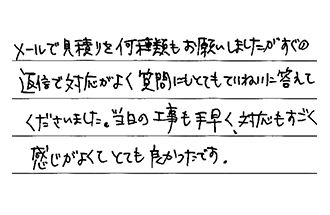 メールで見積りを何種類もお願いしましたがすぐの
返信で対応がよく質問にもとてもていねいに答えて
くださいました。当日の工事も手早く、対応もすごく
感じがよくてとても良かったです。